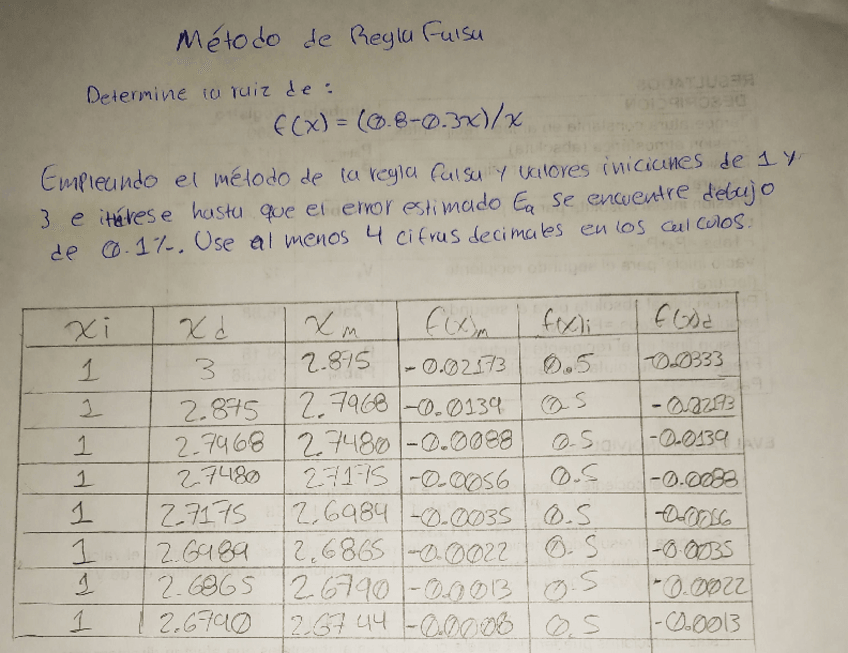 Método de Regla Falsa
Determine la raiz de:
f(x) = (0.8-0.3x)/x
Empleando el método de la regla falsa y valores iniciales de 1 y
3 e itérese hasta que el error estimado Ea se encuentre debajo
de 0.1%. Use al menos 4 cifras decimales en los calculos.
xi xd xm f(x)m f(x)i f(x)d
1 3 2.875 -0.02173 0.5 -0.0333
1 2.875 2.7968 -0.0139 0.5 -0.02173
1 2.7968 2.7480 -0.0088 0.5 -0.0139
1 2.7480 2.7175 -0.0056 0.5 -0.0088
1 2.7175 2.6984 -0.0035 0.5 -0.0056
1 2.6989 2.6865 -0.0022 0.5 -0.0035
1 2.6865 2.6790 -0.0013 0.5 -0.0022
1 2.6790 2.6744 -0.0008 0.5 -0.0013